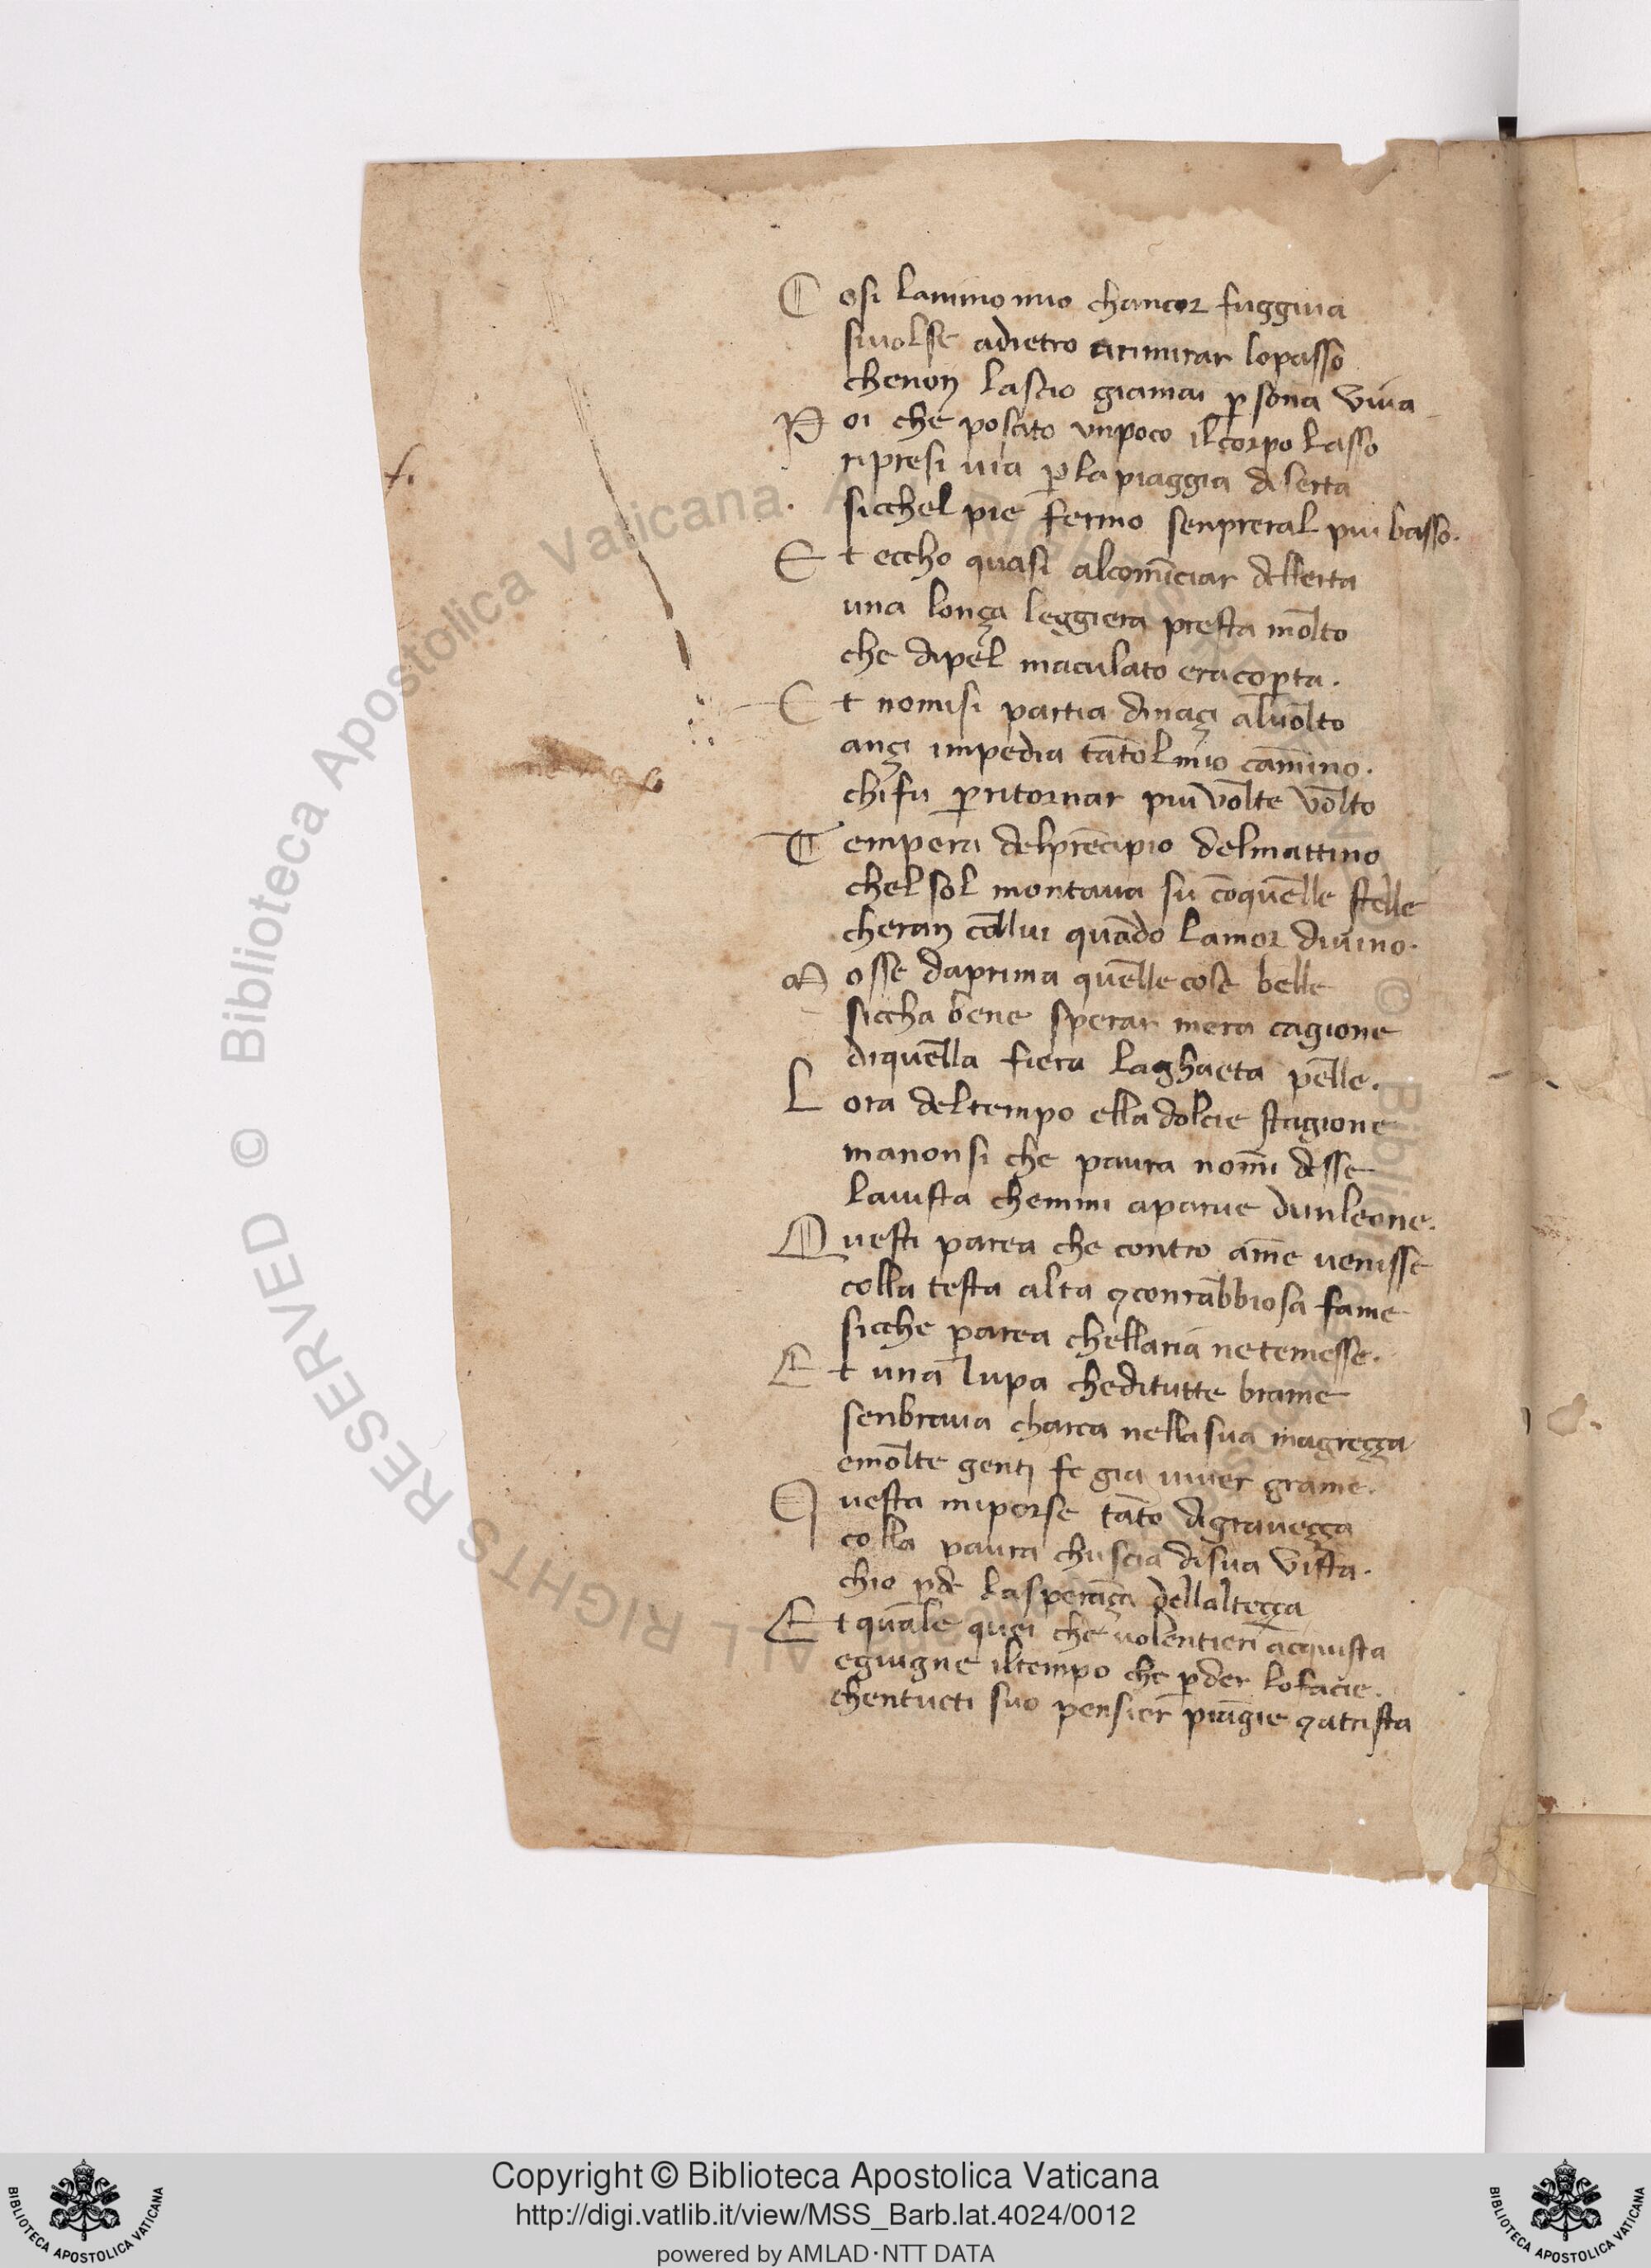 Cosi lanimo mio chancor fuggiua
siuolse adietro arimirar lopasso
chenon lascio giamai ꝑsona viua
Poi che posato vnpoco ilcorpo lasso
ripresi uia ꝑ la piaggia diserta
sicchel pie fermo senpreral piu basso.
Et eccho quasi alcom̄ciar dellerta
una lonça leggiera presta molto
che dipel maculato era coꝑta.
Et nomisi partia dināçi aluolto
ançi impedia tātol mio camino.
chifu ꝑritornar piu volte volto
Tempera delprēcipio delmattino
chel sol montaua su cōquelle stelle
cheran collui quādo lamor diuino.
Mosse daprima quelle cose belle
siccha bene sperar mera cagione
diquella fiera laghaeta pelle.
Lora deltempo ella dolcie stagione
manonsi che paura nomi desse
lauista chemmi aparue dunleone.
Questi parea che contro ame uenisse
colla testa alta ⁊conrabbiosa fame
sicche parea chellaria netemesse.
Et una lupa cheditutte brame
senbraua charca nellasua magreçça
emolte genti fe gia uiuer grame.
Questa miporse tāto digraueçça
colla paura chuscia disua vista.
chio ꝑde lasperāça dellalteçça
Et quale quei che uolentieri acquista
egiugne iltempo che ꝑder lofacie.
chentucti suo pensier piāgie ⁊atrista
f.
Copyright © Biblioteca Apostolica Vaticana
http://digi.vatlib.it/view/MSS_Barb.lat.4024/0012
powered by AMLAD·NTT DATA
BIBLIOTECA APOSTOLICA VATICANA
BIBLIOTECA APOSTOLICA VATICANA
© Biblioteca Apostolica Vaticana. ALL RIGHTS RESERVED